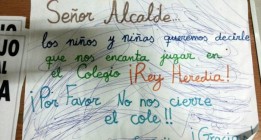 Señor Alcalde...
los niños y niñas queremos decirle
que nos encanta jugar en
el Colegio ¡Rey Heredia!
¡Por Favor No nos cierre
el cole!!
¡Gracia
JO
AL